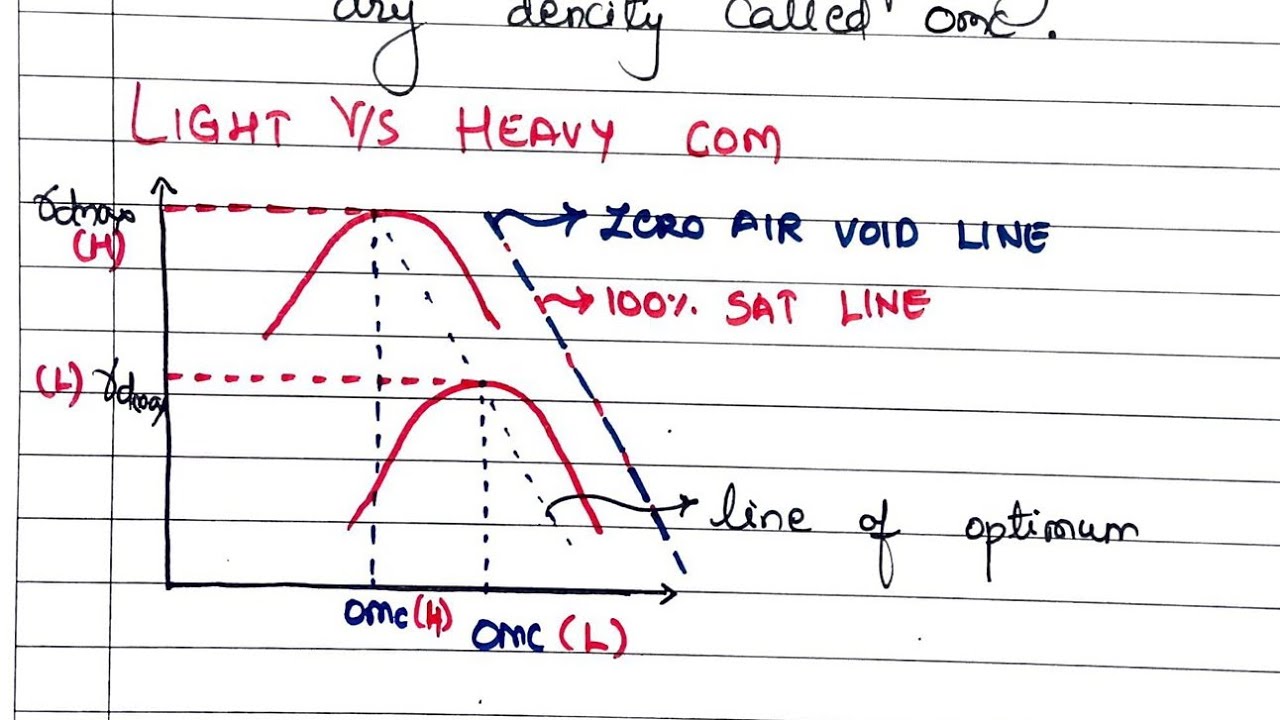 dry dencity called omc.
LIGHT V/S HEAVY COM
γdmax
(H)
ZERO AIR VOID LINE
100% SAT LINE
(L) γdmax
line of optimum
OMC (H)
OMC (L)